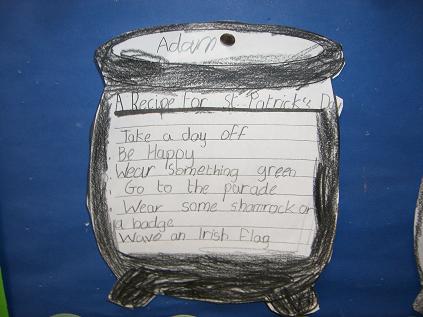 Adam
A Recipe For St Patrick's Day
Take a day off
Be Happy
Wear something green
Go to the parade
Wear some shamrock or
a badge
Wave an Irish flag